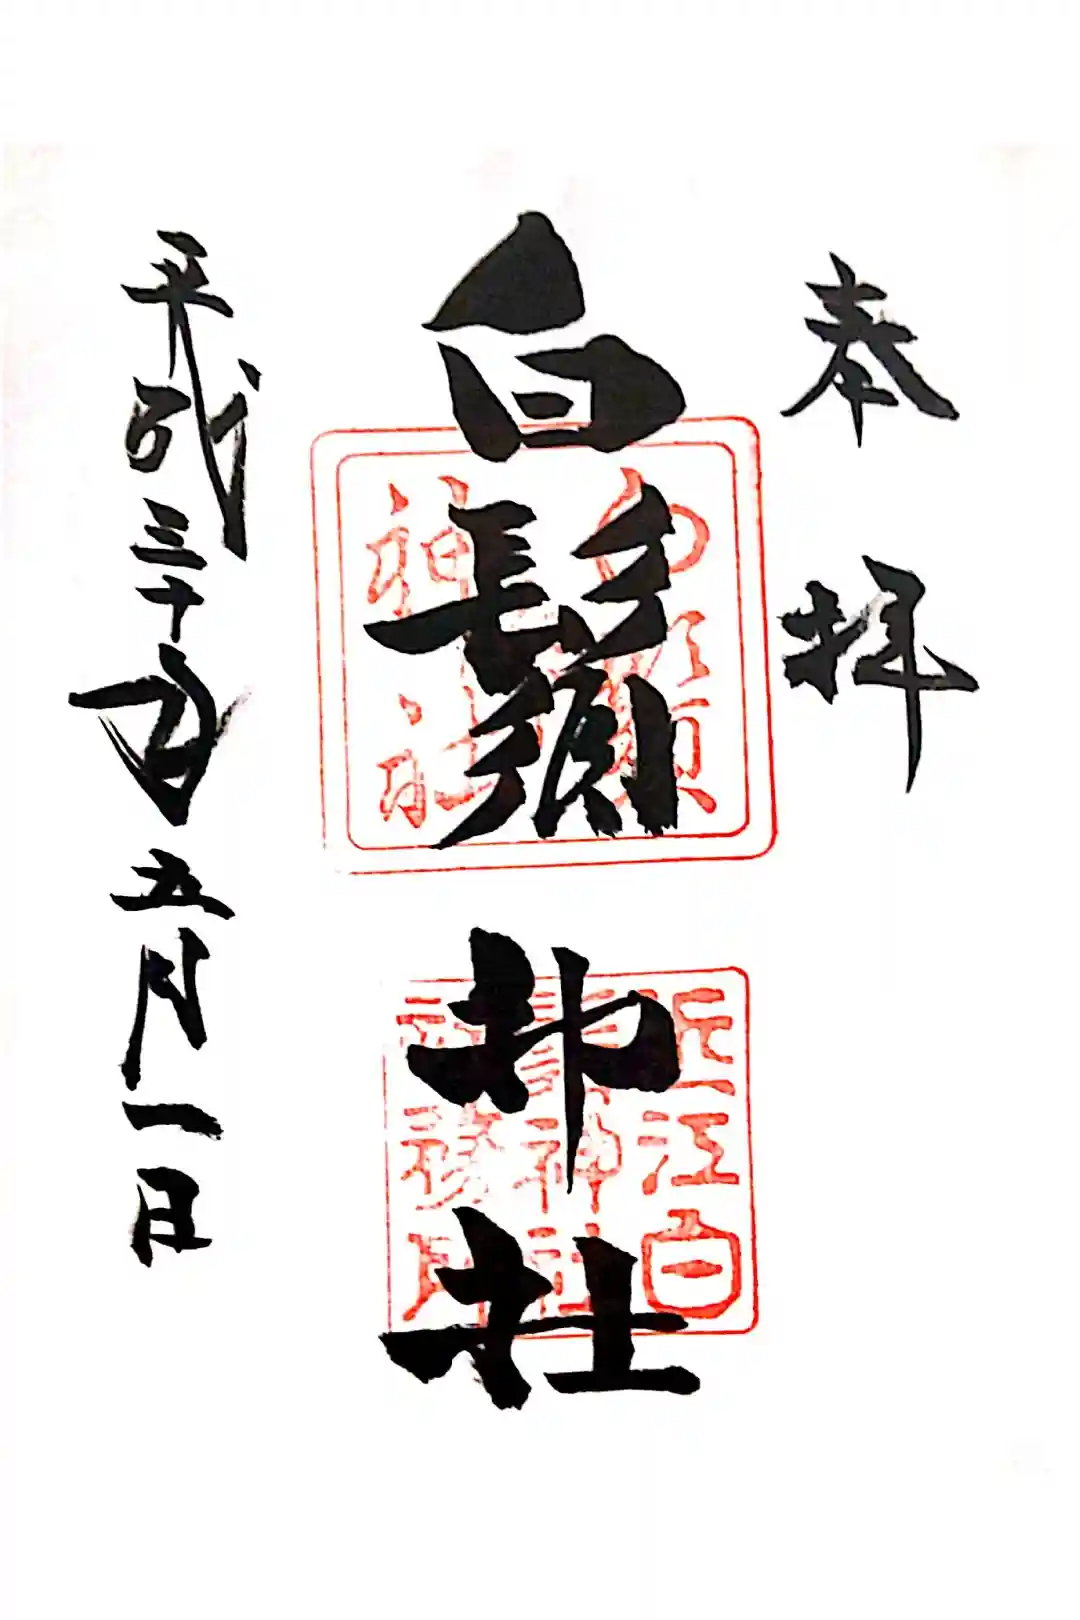 奉拝
白鬚神社
白鬚
神社
近江白
鬚神社
平成三十年五月一日